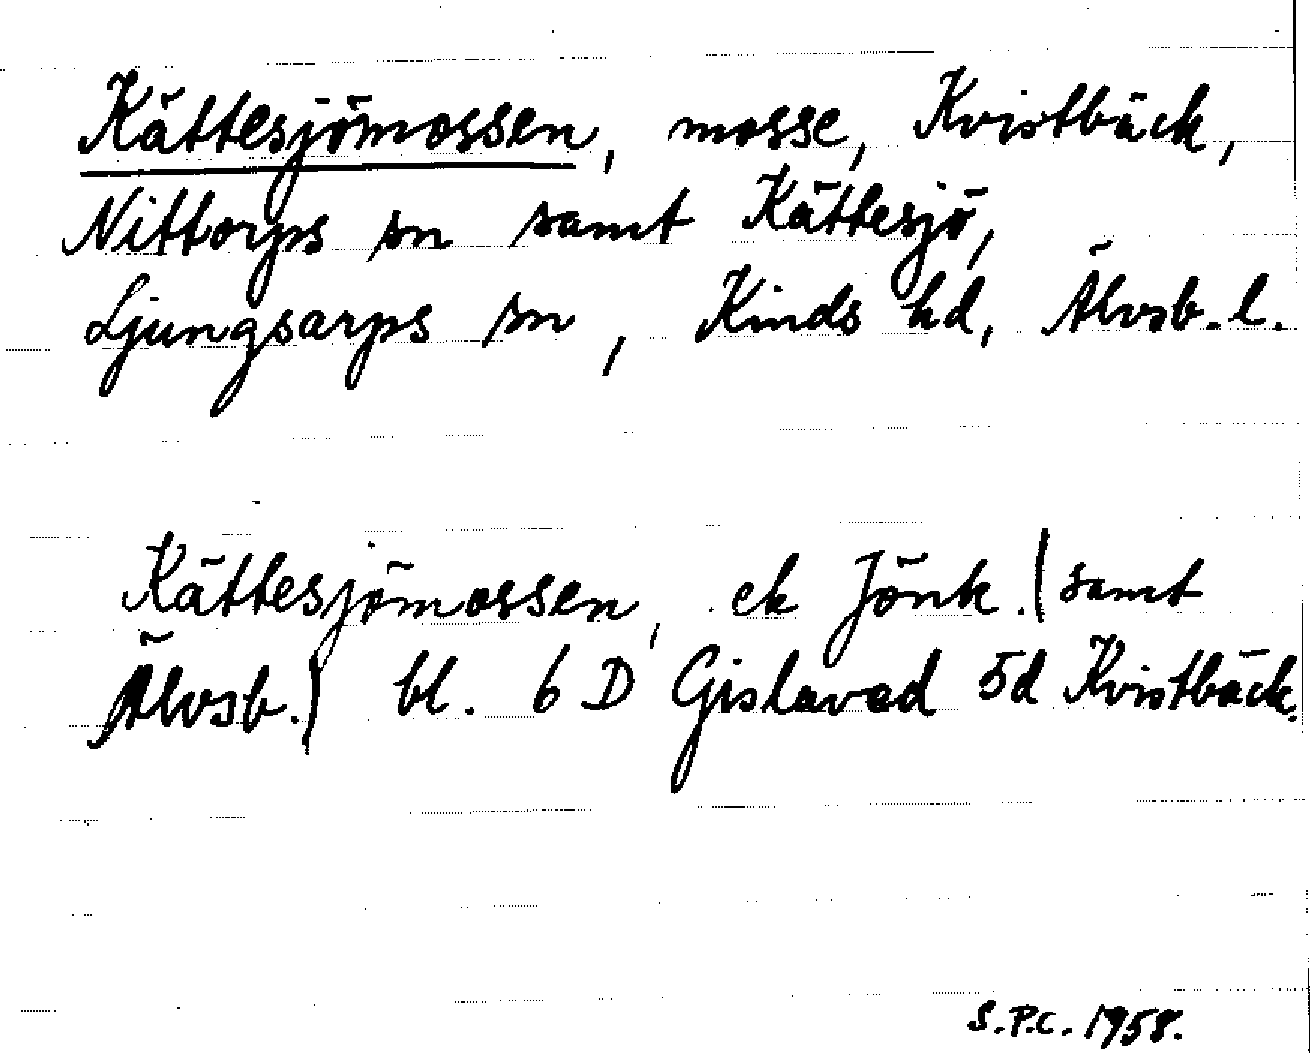 Kättesjömossen, mosse, Kvistbäck,
Nittorps sn samt Kättesjö,
Ljungsarps sn, Kinds hd, Älvsb. l.
Kättesjömossen, ek Jönk. (samt
Älvsb.) bl. 6 D Gislaved 5d Kvistbäck.
S.P.C. 1958.